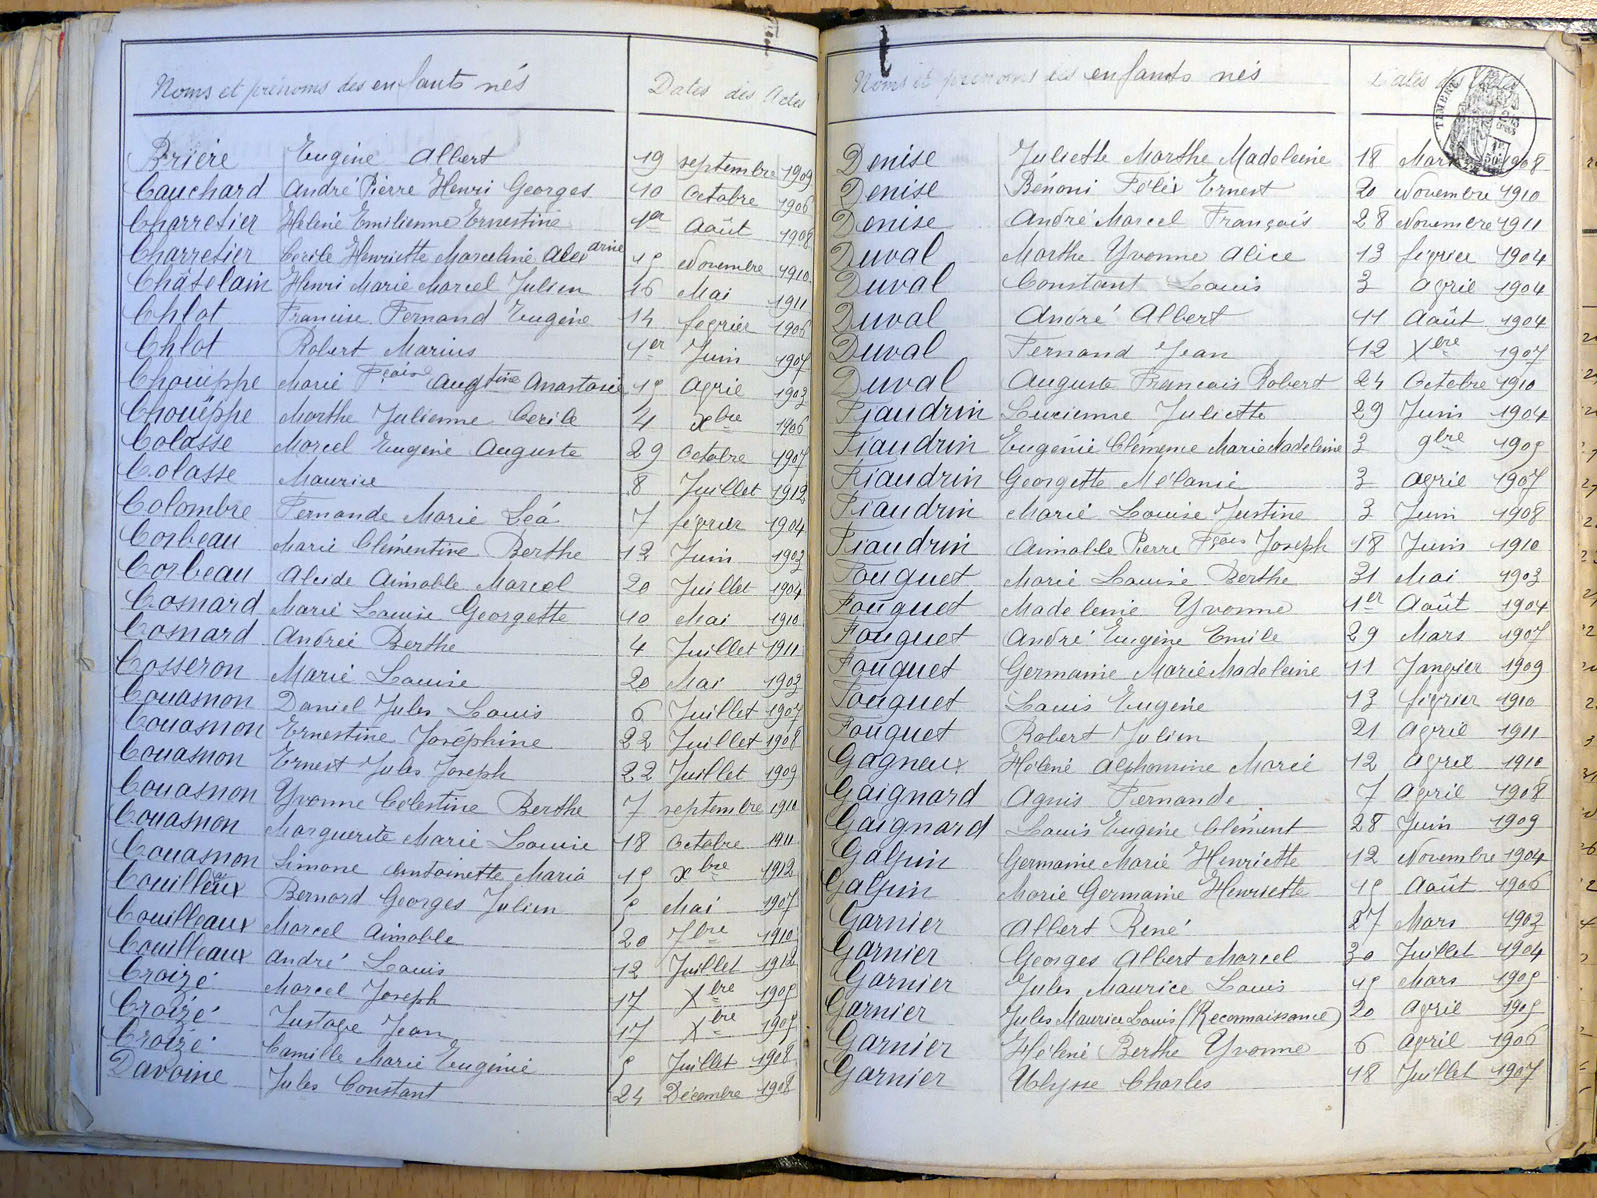 Noms et prénoms des enfants nés Dates des Actes
Brière Eugène Albert 19 septembre 1909
Cauchard André Pierre Henri Georges 10 Octobre 1906
Charretier Hélène Emilienne Ernestine 1er Août 1908
Charretier Cécile Henriette Marceline 15 Novembre 1910
Châtelain Henri Marie Marcel Julien 16 Mai 1911
Chlot Francine Fernand Eugène 14 février 1906
Chlot Robert Marius 1er Juin 1907
Chouëphe Marie Fçoise Augtine Anastasie 15 avril 1903
Chouëphe Marthe Julienne Cécile 4 Xbre 1906
Colasse Marcel Eugène Auguste 29 Octobre 1907
Colasse Maurice 8 Juillet 1912
Colombre Fernande Marie Léa 7 février 1904
Corbeau Marie Clémentine Berthe 12 Juin 1903
Corbeau Alcide Aimable Marcel 20 Juillet 1904
Cosnard Marie Louise Georgette 10 Mai 1910
Cosnard Andrée Berthe 4 Juillet 1911
Cosseron Marie Louise 20 Mai 1903
Couasnon Daniel Jules Louis 6 Juillet 1907
Couasnon Ernestine Joséphine 22 Juillet 1908
Couasnon Ernest Jules Joseph 22 Juillet 1909
Couasnon Yvonne Célestine Berthe 7 septembre 1910
Couasnon Marguerite Marie Louise 18 Octobre 1911
Couasnon Simone Antoinette Maria 15 Xbre 1912
Couilleaux Bernard Georges Julien 5 Mai 1907
Couilleaux Marcel Aimable 20 7bre 1910
Couilleaux André Louis 12 Juillet 1912
Croizé Marcel Joseph 17 Xbre 1905
Croizé Gustave Jean 17 Xbre 1905
Croizé Camille Marie Eugénie 5 Juillet 1908
Davoine Jules Constant 24 Décembre 1908
Noms et prénoms des enfants nés Dates des Actes
Denise Juliette Marthe Madeleine 18 Mars 1908
Denise Bénoni Félix Ernest 20 Novembre 1910
Denise André Marcel François 28 Novembre 1911
Duval Marthe Yvonne Alice 13 février 1904
Duval Constant Louis 3 avril 1904
Duval André Albert 11 Août 1904
Duval Fernand Jean 12 Xbre 1907
Duval Auguste François Robert 24 Octobre 1910
Fiaudrin Lucienne Juliette 29 Juin 1904
Fiaudrin Eugénie Clémence Marie Madeleine 3 9bre 1905
Fiaudrin Georgette Mélanie 3 avril 1907
Fiaudrin Marie Louise Justine 3 Juin 1908
Fiaudrin Aimable Pierre Fçois Joseph 18 Juin 1910
Fouquet Marie Louise Berthe 31 Mai 1903
Fouquet Madeleine Yvonne 1er Août 1904
Fouquet André Eugène Emile 29 Mars 1907
Fouquet Germaine Marie Madeleine 11 Janvier 1909
Fouquet Louis Eugène 13 février 1910
Fouquet Robert Julien 21 avril 1911
Gagneux Hélène Alphonsine Marie 12 avril 1910
Gaignard Agnis Fernande 7 avril 1908
Gaignard Louis Eugène Clément 28 Juin 1909
Galpin Germaine Marie Henriette 12 Novembre 1904
Galpin Marie Germaine Henriette 15 Août 1906
Garnier Albert René 27 Mars 1903
Garnier Georges Albert Marcel 30 Juillet 1904
Garnier Jules Maurice Louis 15 Mars 1905
Garnier Jules Maurice Louis (Reconnaissance) 20 avril 1905
Garnier Hélène Berthe Yvonne 6 avril 1906
Garnier Ulysse Charles 18 Juillet 1907